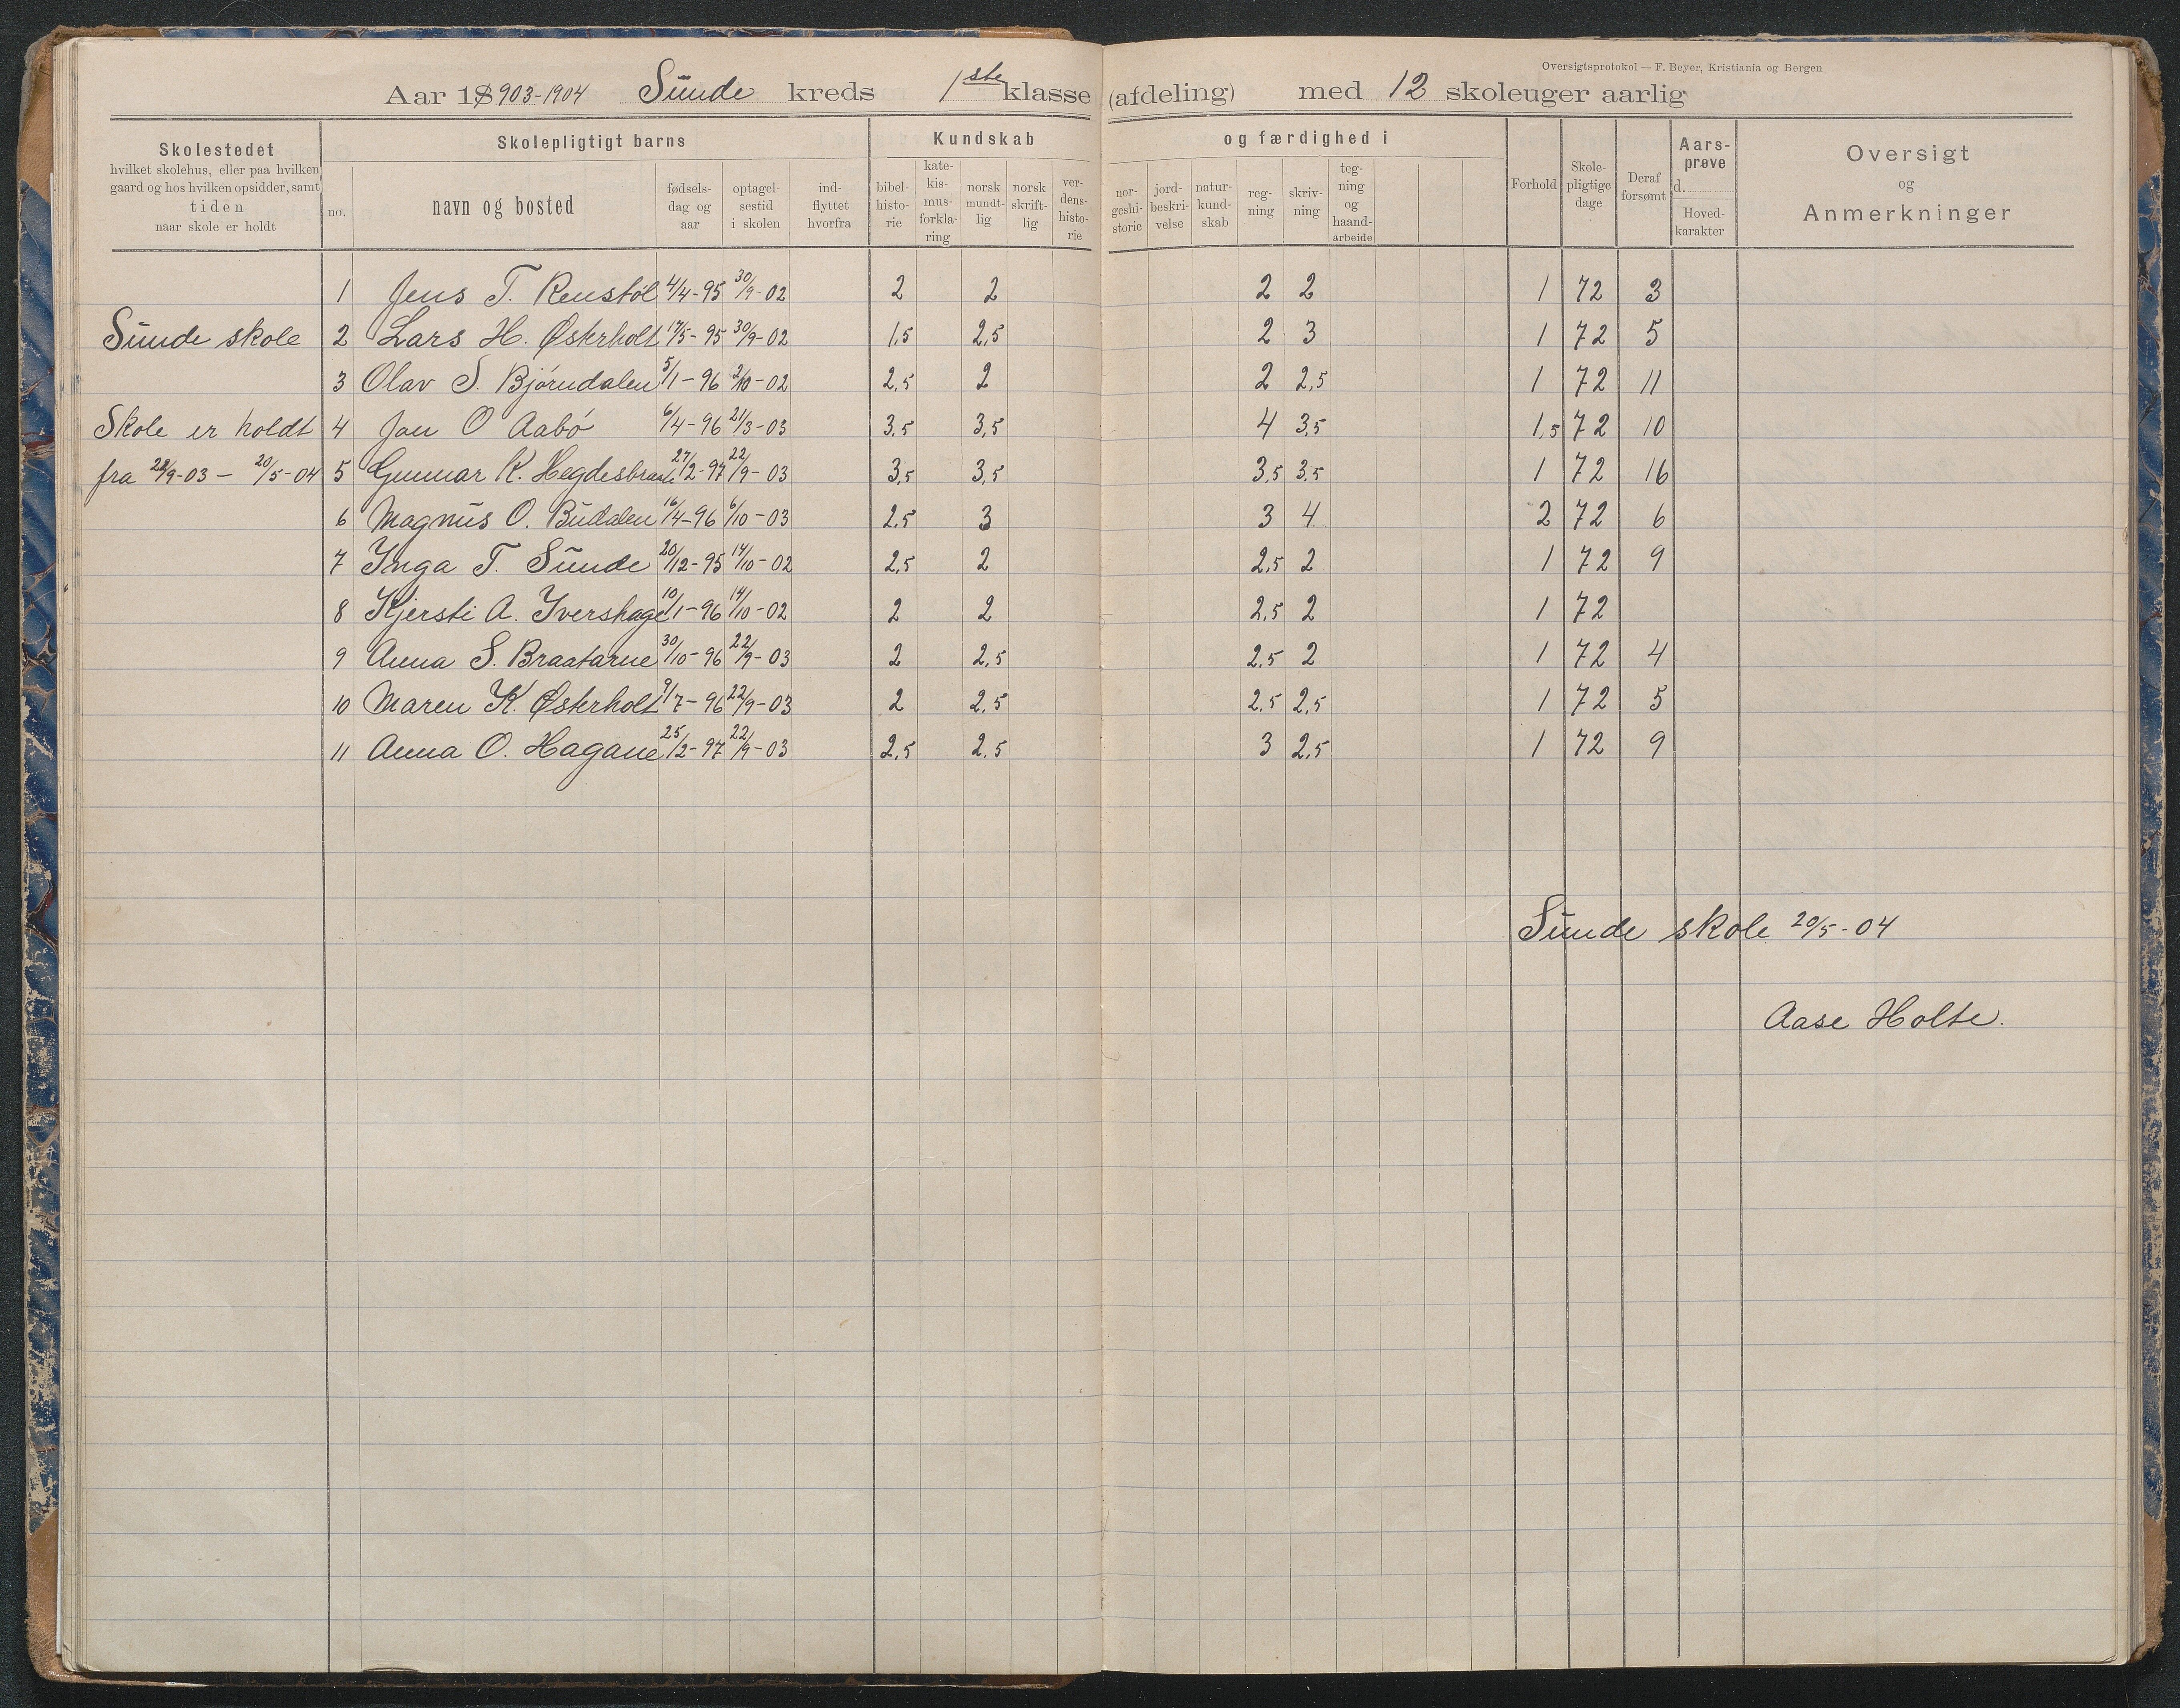 Oversigtsprotokol — F. Beyer, Kristiania og Bergen
Aar 1903-1904 Sunde kreds 1ste klasse (afdeling) med 12 skoleuger aarlig
Skolestedet
hvilket skolehus, eller paa hvilken
gaard og hos hvilken opsidder, samt
tiden
naar skole er holdt
Skolepligtigt barns
no.
navn og bosted
fødsels-
dag og
aar
optagel-
sestid
i skolen
ind-
flyttet
hvorfra
Kundskab
bibel-
histo-
rie
kate-
kis-
mus-
forkla-
ring
norsk
mundt-
lig
norsk
skrift-
lig
ver-
dens-
histo-
rie
og færdighed i
nor-
geshi-
storie
jord-
beskri-
velse
natur-
kund-
skab
reg-
ning
skriv-
ning
teg-
ning
og
haand-
arbeide
Forhold
Skole-
pligtige
dage
Deraf
forsømt
Aars-
prøve
d.
Hoved-
karakter
Oversigt
og
Anmerkninger
1 Jens T. Renstøl 4/4-95 30/9-02 2 2 2 2 1 72 3
Sunde skole 2 Lars H. Østerholt 17/5-95 30/9-02 1,5 2,5 2 3 1 72 5
3 Olav S. Bjørndalen 5/1-96 2/10-02 2,5 2 2 2,5 1 72 11
Skole er holdt 4 Jon O Aabø 6/4-96 21/3-03 3,5 3,5 4 3,5 1,5 72 10
fra 22/9-03 - 20/5-04 5 Gunnar K. 27/2-97 22/9-03 3,5 3,5 3,5 3,5 1 72 16
6 Magnus O. Budalen 16/4-96 6/10-03 2,5 3 3 4 2 72 6
7 Inga T. Sunde 20/12-95 14/10-02 2,5 2 2,5 2 1 72 9
8 Kjersti A. Ivershage 10/1-96 14/10-02 2 2 2,5 2 1 72
9 Anna S. Braatarne 30/10-96 22/9-03 2 2,5 2,5 2 1 72 4
10 Maren K. Østerholt 9/7-96 22/9-03 2 2,5 2,5 2,5 1 72 5
11 Anna O. Hagane 25/2-97 22/9-03 2,5 2,5 3 2,5 1 72 9
Sunde skole 20/5-04
Aase Holte.